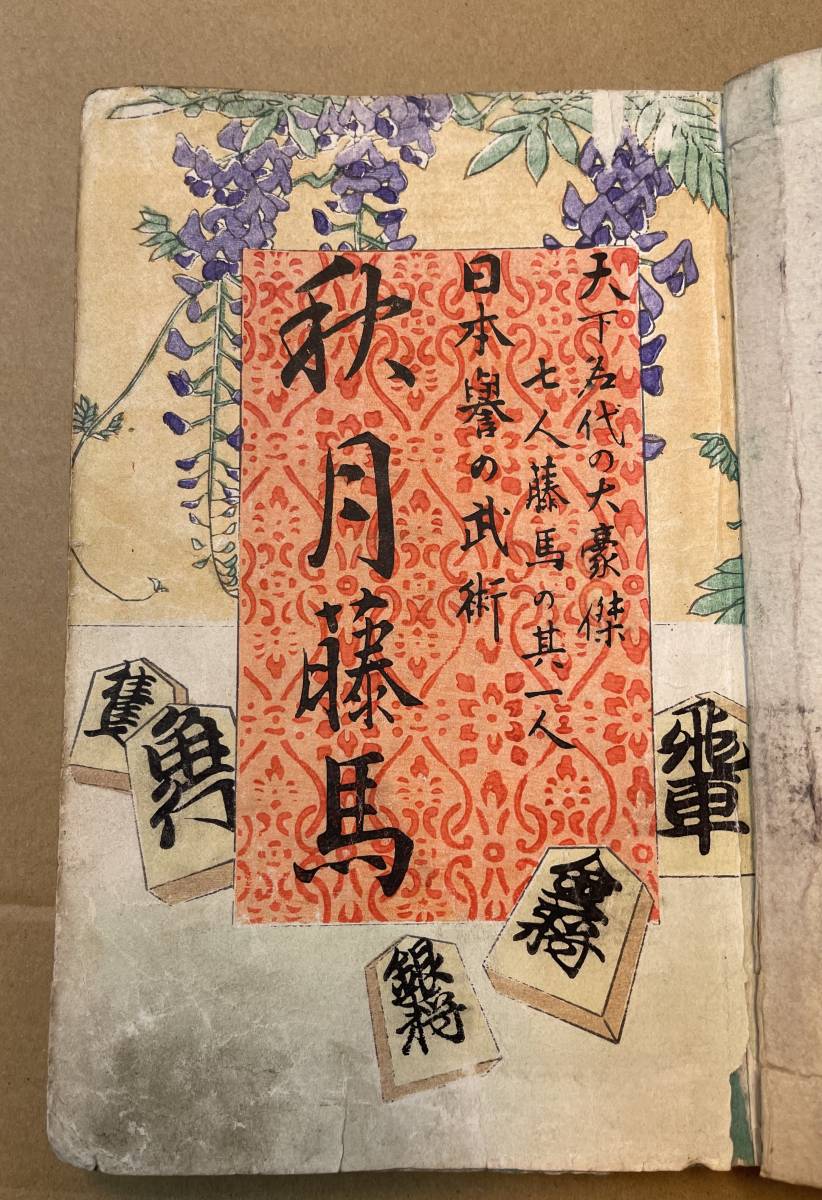 天下名代の大豪傑
七人藤馬の其一人
日本譽の武術
秋月藤馬
飛車
角行
金将
銀将